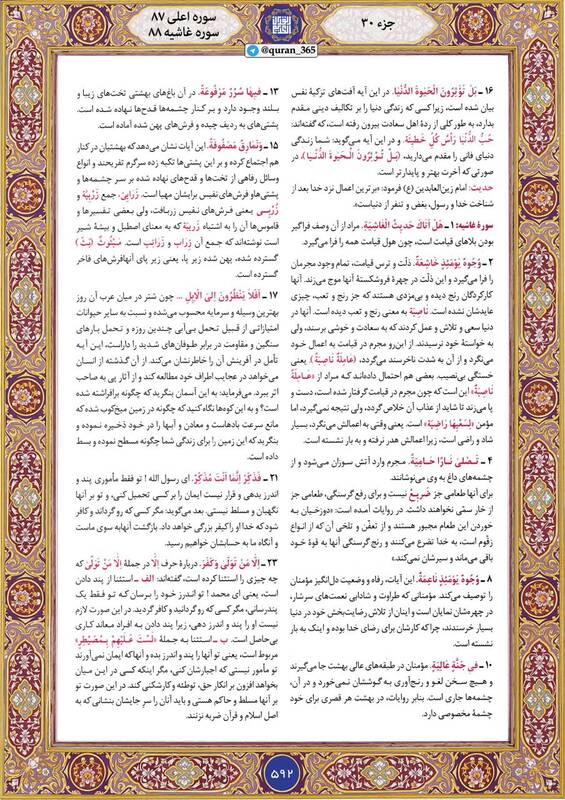 جزء ۳۰
سوره اعلی ۸۷
سوره غاشیه ۸۸
@quran_365
۱۶ ـ بَلْ تُؤْثِرُونَ الْحَیٰوةَ الدُّنْیَا. در این آیه آفت‌های تزکیهٔ نفس
بیان شده است، زیرا کسی که زندگی دنیا را بر تکالیف دینی مقدم
بدارد، به طور کلی از ردهٔ اهل سعادت بیرون رفته است، که گفته‌اند:
حُبُّ الدُّنْیَا رَأسُ کُلِّ خَطیئَة. و در این آیه می‌گوید: شما زندگی
دنیای فانی را مقدم می‌دارید، (بَلْ تُؤْثِرُونَ الْحَیٰوةَ الدُّنْیَا)، در
صورتی که آخرت بهتر و پایدارتر است.
حدیث: امام زین‌العابدین (ع) فرمود: «برترین اعمال نزد خدا بعد از
شناخت خدا و رسول، بغض و تنفر از دنیاست.
سورهٔ غاشیه: ۱ ـ هَلْ أَتَاكَ حَدِیثُ الْغَاشِیَةِ. مراد از آن وصف فراگیر
بودن بلاهای قیامت است، چون هول قیامت همه را فرا می‌گیرد.
۲ ـ وُجُوهٌ یَوْمَئِذٍ خَاشِعَةٌ. ذلّت و ترس قیامت، تمام وجود مجرمان
را فرا می‌گیرد و این ذلّت در چهرهٔ فروشکستهٔ آنها موج می‌زند. آنها
کارکردگان رنج دیده و بی‌مزدی هستند که جز رنج و تعب، چیزی
عایدشان نشده است. نَاصِبَة به معنی رنج و تعب دیده است. آنها در
دنیا سعی و تلاش و عمل کردند که به سعادت و خوشی برسند، ولی
به خواستهٔ خود نرسیدند. از این‌رو مجرم در قیامت به اعمال خود
می‌نگرد و از آن به شدت ناخرسند می‌گردد، (عَامِلَةٌ نَاصِبَةٌ)، یعنی
خستگی بی‌نصیب. بعضی هم احتمال داده‌اند که مراد از «عَـامِلَةٌ
نَاصِبَةٌ» این است که چون مجرم در قیامت گرفتار شده است، دست و
پا می‌زند تا شاید از عذاب آن خلاص گردد، ولی نتیجه نمی‌گیرد، اما
مؤمن «لِسَعْیِهَا رَاضِیَة» است. یعنی وقتی به اعمالش می‌نگرد، بسیار
شاد و راضی است، زیرا اعمالش هدر نرفته و به بار نشسته است.
۴ ـ تَـصْلیٰ نَـارًا حَـامِیَةً. مجرم وارد آتش سوزان می‌شود و از
چشمه‌های داغ به وی می‌نوشانند.
برای آنها طعامی جز ضَرِیع نیست و برای رفع گرسنگی، طعامی جز
از خار سمّی نخواهند داشت. در روایات آمده است: «دوزخیان به
خوردن این طعام مجبور هستند و از تعفّن و تلخی آن که از انواع
زقّوم است، به خدا تضرع می‌کنند و رنج گرسنگی آنها به قوهٔ خود
باقی می‌ماند و سیرشان نمی‌کند.»
۸ ـ وُجُوهٌ یَوْمَئِذٍ نَاعِمَةٌ. این آیات، رفاه و وضعیت دل‌انگیز مؤمنان
را توصیف می‌کند. مؤمنانی که طراوت و شادابی نعمت‌های سرشار،
در چهره‌شان نمایان است و اینان از تلاش رضایت‌بخش خود در دنیا
بسیار خرسندند، چرا که کارشان برای رضای خدا بوده و اینک به بار
نشسته است.
۱۰ ـ فِی جَنَّةٍ عَالِیَةٍ. مؤمنان در طبقه‌های عالی بهشت جا می‌گیرند
و هیچ سخن لغو و رنج‌آوری به گوششان نمی‌خورد و در آن،
چشمه‌ها جاری است. بنابر روایات، در بهشت هر قصری برای خود
چشمهٔ مخصوصی دارد.
۱۳ ـ فِیهَا سُرُرٌ مَرْفُوعَةٌ. در آن باغ‌های بهشتی تخت‌های زیبا و
بلند وجود دارد و بر کنار چشمه‌ها قدح‌ها نهاده شده است.
پشتی‌های به ردیف چیده و فرش‌های پهن شده آماده است.
۱۵ ـ وَنَمَارِقُ مَصْفُوفَةٌ. این آیات نشان می‌دهد که بهشتیان در کنار
هم اجتماع کرده و بر این پشتی‌ها تکیه زده سرگرم تفریحند و انواع
وسائل رفاهی از تخت‌ها و قدح‌های نهاده شده بر سر چشمه‌ها و
پشتی‌ها و فرش‌های نفیس برایشان مهیا است. زَرَابِیّ، جمع زَرْبِیَّة و
زُرْبِـی یعنی فرش‌های نفیس زربافت، ولی بعضی تفسیرها و
قاموس‌ها آن را به اشتباه زَرِیبَة که به معنای اصطبل و بیشهٔ شیر
است نوشته‌اند که جمع آن زِرَاب و زَرَائِب است. مَبْثُوثٌ (بَثَّ)
گسترده شده، پهن شده زیر پا، یعنی زیر پای آنها فرش‌های فاخر
گسترده است.
۱۷ ـ أَفَلَا یَنْظُرُونَ إِلَی الْإِبِلِ ... چون شتر در میان عرب آن روز
بهترین وسیله و سرمایه محسوب می‌شده و نسبت به سایر حیوانات
امتیازاتی از قبیل تحمل بی‌آبی چندین روزه و تحمل بارهای
سنگین و مقاومت در برابر طوفان‌های شدید را داراست، این آیـه
تأمل در آفرینش آن را خاطرنشان می‌کند. از آن گذشته از انسان
می‌خواهد در عجایب اطراف خود مطالعه کند و از آثار پی به صاحب
اثر ببرد. می‌فرماید: به این آسمان بنگرید که چگونه برافراشته شده
است؟ و به این کوه‌ها نگاه کنید که چگونه در زمین میخ‌کوب شده که
مانع سرعت بادهاست و معادن و آبها را در خود ذخیره نموده و
بنگرید که این زمین را برای زندگی شما چگونه مسطح نموده و بسط
داده است.
۲۱ ـ فَذَکِّرْ إِنَّمَا أَنْتَ مُذَکِّرٌ. ای رسول الله! تو فقط مأموری پند و
اندرز بدهی و قرار نیست ایمان را بر کسی تحمیل کنی، و تو بر آنها
نگهبان و مسلط نیستی. بعد می‌گوید: مگر کسی که رو گرداند و کافر
شود که خدا او را کیفر بزرگی خواهد داد. بازگشت آنها به سوی ماست
و آنگاه ما به حسابشان خواهیم رسید.
۲۳ ـ إِلَّا مَنْ تَوَلَّیٰ وَکَفَرَ. دربارهٔ حرف إِلَّا در جملهٔ إِلَّا مَنْ تَوَلَّیٰ که
چه چیزی را استثنا کرده است، گفته‌اند: الف ـ استثنا از پند دادن
است، یعنی ای محمد! تو اندرز خود را برسان که تو فقط یک
پندرسانی، مگر کسی که رو گردانید و کافر گردید. در این صورت لازم
نیست او را پند و اندرز دهی، زیرا پند دادن به افراد معـاند کاری
بی‌حاصل است. ب ـ استثنا به جملهٔ «لَسْتَ عَلَیْهِمْ بِـمُصَیْطِرٍ»
مربوط است، یعنی تو آنها را پند و اندرز بده و آنها که ایمان نمی‌آورند
تو مأمور نیستی که اجبارشان کنی، مگر اینکه کسی در این میـان
بخواهد افزون بر انکار حق، توطئه و کارشکنی کند. در این صورت تو
بر آنها مسلط و حاکم هستی و باید آنان را سر جایشان بنشانی که به
اصل اسلام و قرآن ضربه نزنند.
۵۹۲